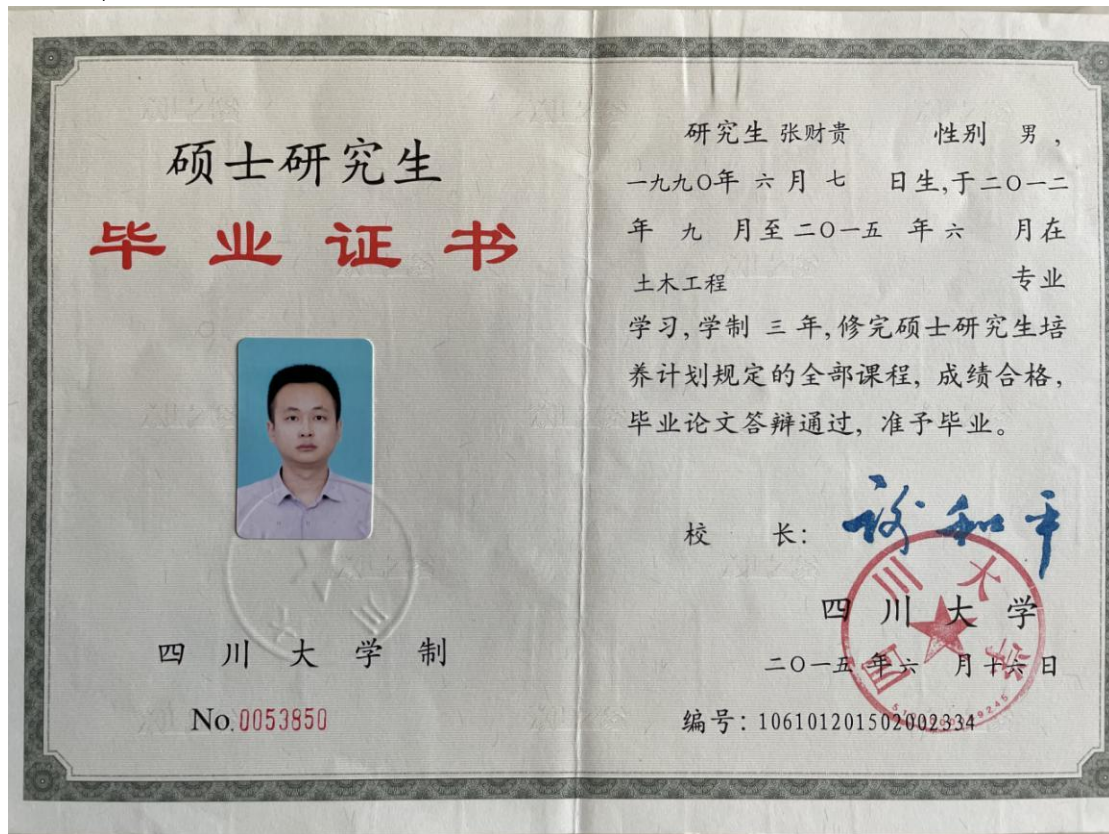 硕士研究生
毕业证书
四川大学制
No.0053850
研究生 张财贵 性别 男，
一九九〇年 六 月 七 日生,于二〇一二
年 九 月至 二〇一五 年 六 月在
土木工程 专业
学习,学制 三 年,修完硕士研究生培
养计划规定的全部课程, 成绩合格,
毕业论文答辩通过, 准予毕业。
校 长: 谢和平
四川大学
四川大学
二〇一五 年 六 月十六日
编号: 106101201502002334